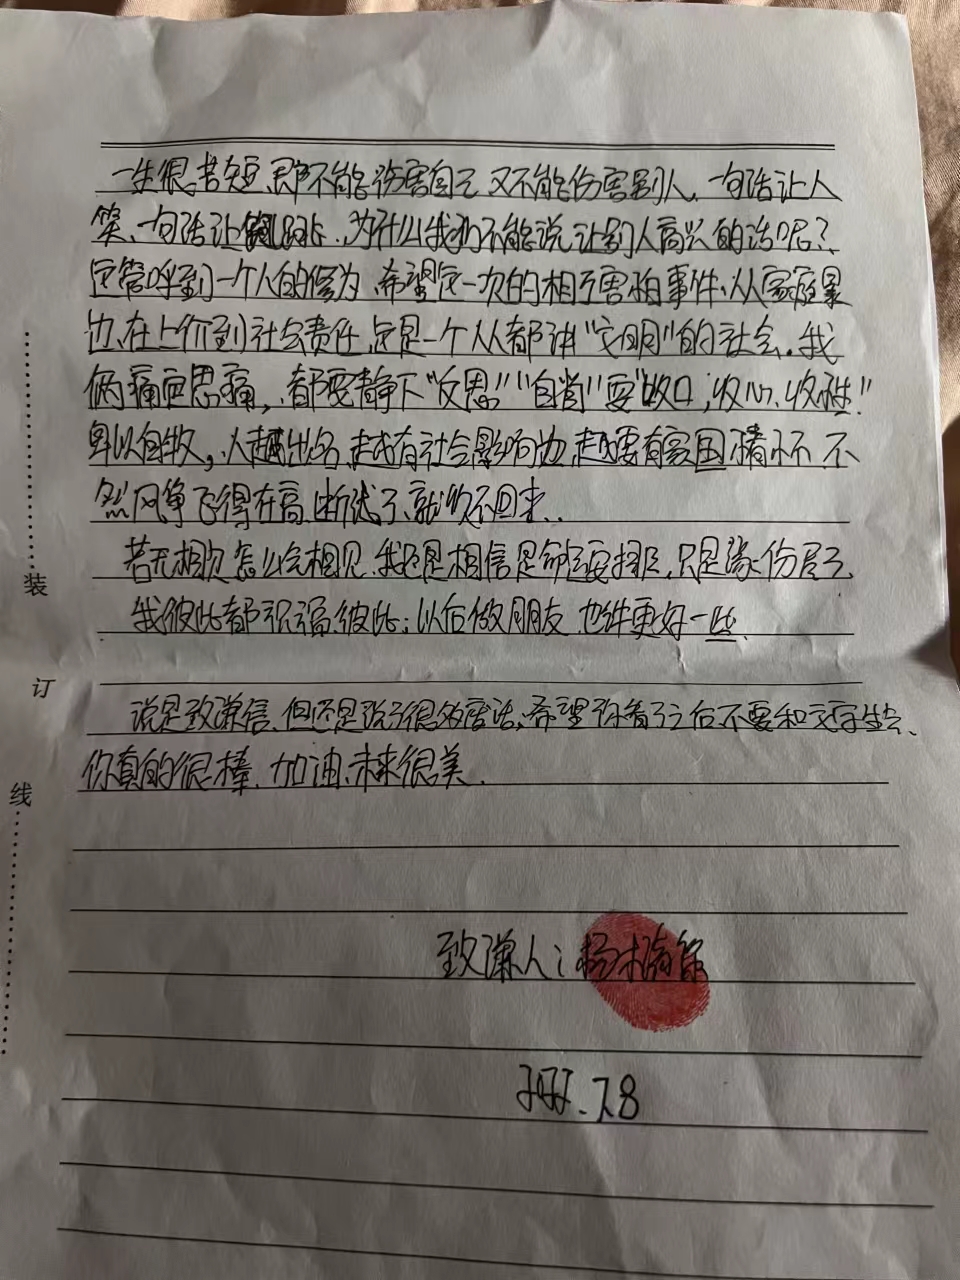 一生很苦短，即不能伤害自己又不能伤害别人，一句话让人
笑、一句话让人跳，为什么我们不能说让别人高兴的话呢？
这管呼到一个人的修为，希望这一次的相互害怕事件，从家庭
边，在上价到社会责任，这是一个人人都讲“文明”的社会。我
俩痛定思痛，都要静下“反思”“自省”要“收口，收心，收性！”
卑以自牧，人越出名，越有社会影响力，越要有家国情怀 不
然风争飞得在高，断线了，就收不回来..
若无相欠怎么会相见，我还是相信是命运安排，只是缘份尽了，
我彼此都祝福彼此；以后做朋友，也许更好一些，
说是致谦信，但还是说了很多废话，希望你看了之后不要和文字生气、
你真的很棒，加油，未来很美.
致谦人：杨
7.8
装
订
线